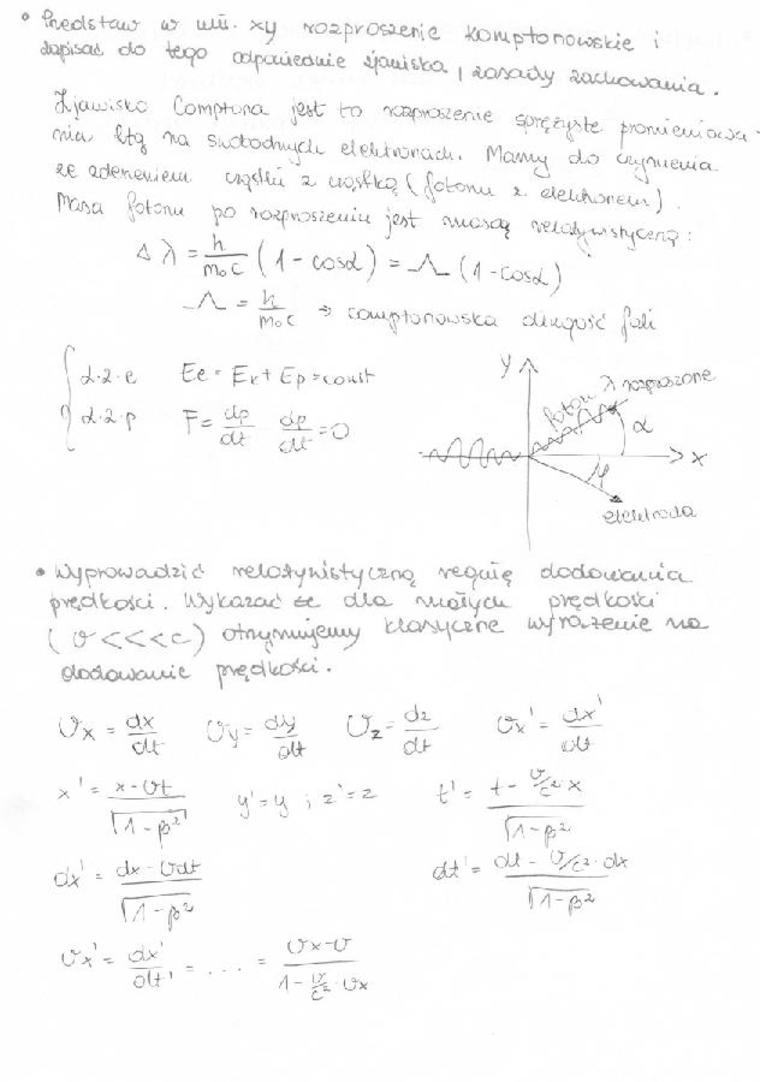 • Predstaw w ukł. xy rozproszenie komptonowskie i
dopisać do tego odpowiednie zjawiska, zasady zachowania.
Zjawisko Comptona jest to rozproszenie sprężyste promieniowa-
nia na swobodnych elektronach. Mamy do czynienia
ze zderzeniem cząstki z cząstką (fotonu z elektronem).
Masa fotonu po rozproszeniu jest masą relatywistyczną:
Δλ = h/m₀c (1 - cosα) = Λ (1 - cosα)
Λ = h/m₀c → comptonowska długość fali
{ z·z·e Ee = Ek + Ep = const
{ z·z·p F = dp/dt dp/dt = 0
y
foton λ rozproszone
α
x
φ
elektroda
• Wyprowadzić relatywistyczną regułę dodawania
prędkości. Wykazać że dla małych prędkości
(υ <<< c) otrzymujemy klasyczne wyrażenie na
dodawanie prędkości.
υx = dx/dt υy = dy/dt υz = dz/dt υx' = dx'/dt
x' = (x - υt)/√(1 - β²) y' = y ; z' = z t' = (t - υ/c² x)/√(1 - β²)
dx' = (dx - υdt)/√(1 - β²) dt' = (dt - υ/c² · dx)/√(1 - β²)
υx' = dx'/dt' = .... = (υx - υ)/(1 - υ/c² · υx)